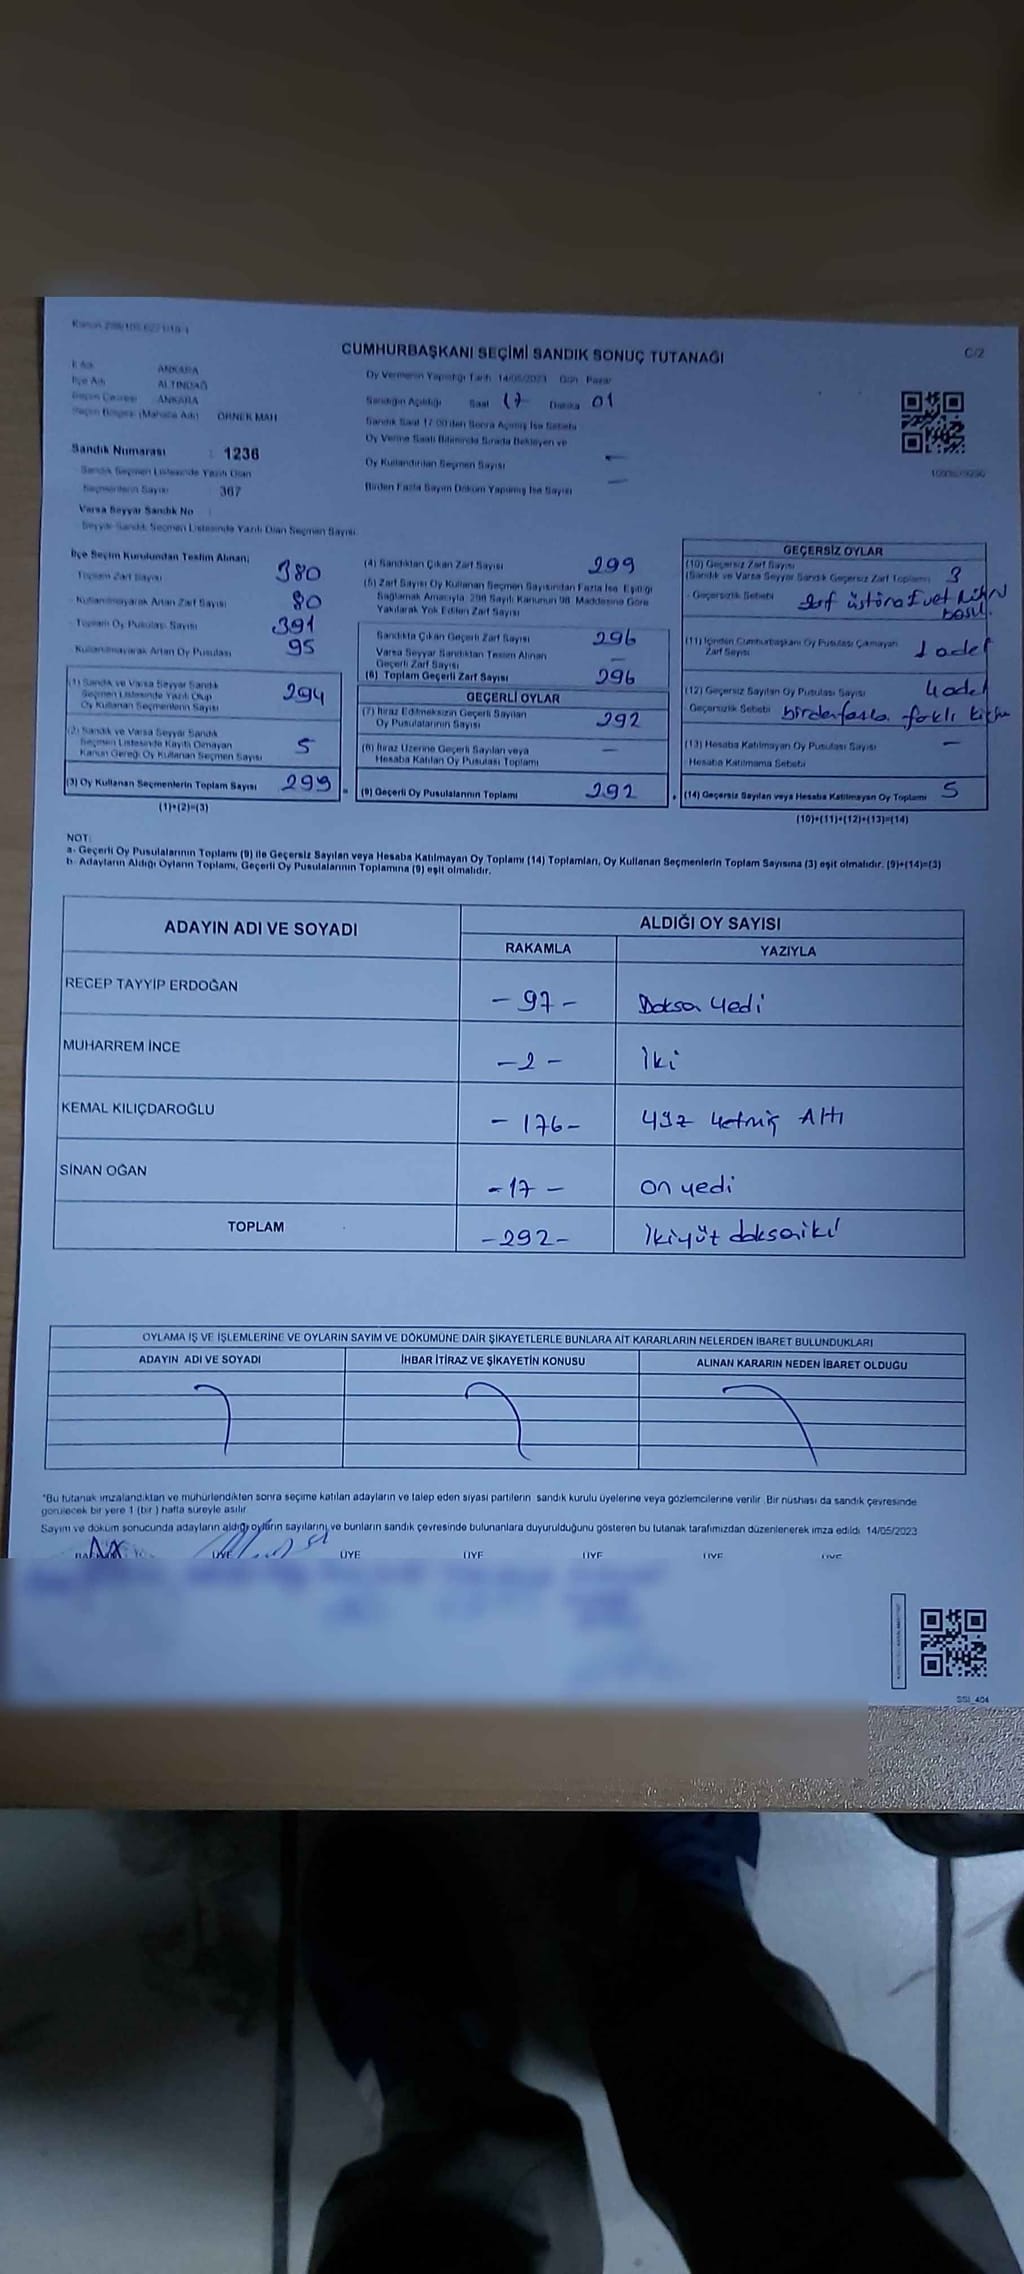 CUMHURBAŞKANI SEÇİMİ SANDIK SONUÇ TUTANAĞI
C/2
İl Adı ANKARA
İlçe Adı ALTINDAĞ
Seçim Çevresi ANKARA
Seçim Bölgesi (Mahalle Adı) ÖRNEK MAH
Oy Vermenin Yapıldığı Tarih 14/05/2023 Gün Pazar
Sandığın Açıldığı Saat 17 Dakika 01
Sandık Saat 17:00'den Sonra Açılmış İse Sebebi
Oy Verme Saati Bitiminde Sırada Bekleyen ve
Oy Kullandırılan Seçmen Sayısı —
Birden Fazla Sayım Döküm Yapılmış İse Sayısı —
Sandık Numarası : 1236
Sandık Seçmen Listesinde Yazılı Olan
Seçmenlerin Sayısı : 367
Varsa Seyyar Sandık No :
Seyyar Sandık Seçmen Listesinde Yazılı Olan Seçmen Sayısı
İlçe Seçim Kurulundan Teslim Alınan;
Toplam Zarf Sayısı 380
Kullanılmayarak Artan Zarf Sayısı 80
Toplam Oy Pusulası Sayısı 391
Kullanılmayarak Artan Oy Pusulası 95
(1) Sandık ve Varsa Seyyar Sandık
Seçmen Listesinde Yazılı Olup
Oy Kullanan Seçmenlerin Sayısı 294
(2) Sandık ve Varsa Seyyar Sandık
Seçmen Listesinde Kayıtlı Olmayan
Kanun Gereği Oy Kullanan Seçmen Sayısı 5
(3) Oy Kullanan Seçmenlerin Toplam Sayısı 299 =
(1)+(2)=(3)
(4) Sandıktan Çıkan Zarf Sayısı 299
(5) Zarf Sayısı Oy Kullanan Seçmen Sayısından Fazla İse Eşitliği
Sağlamak Amacıyla 298 Sayılı Kanunun 98. Maddesine Göre
Yakılarak Yok Edilen Zarf Sayısı
Sandıkta Çıkan Geçerli Zarf Sayısı 296
Varsa Seyyar Sandıktan Teslim Alınan
Geçerli Zarf Sayısı —
(6) Toplam Geçerli Zarf Sayısı 296
GEÇERLİ OYLAR
(7) İtiraz Edilmeksizin Geçerli Sayılan
Oy Pusulalarının Sayısı 292
(8) İtiraz Üzerine Geçerli Sayılan veya
Hesaba Katılan Oy Pusulası Toplamı —
(9) Geçerli Oy Pusulalarının Toplamı 292 +
GEÇERSİZ OYLAR
(10) Geçersiz Zarf Sayısı
(Sandık ve Varsa Seyyar Sandık Geçersiz Zarf Toplamı) 3
- Geçersizlik Sebebi Zarf üstüne Evet
(11) İçinden Cumhurbaşkanı Oy Pusulası Çıkmayan
Zarf Sayısı 1 adet
(12) Geçersiz Sayılan Oy Pusulası Sayısı 4 adet
Geçersizlik Sebebi birdenfazla farklı
(13) Hesaba Katılmayan Oy Pusulası Sayısı —
Hesaba Katılmama Sebebi
(14) Geçersiz Sayılan veya Hesaba Katılmayan Oy Toplamı 5
(10)+(11)+(12)+(13)=(14)
NOT:
a- Geçerli Oy Pusulalarının Toplamı (9) ile Geçersiz Sayılan veya Hesaba Katılmayan Oy Toplamı (14) Toplamları, Oy Kullanan Seçmenlerin Toplam Sayısına (3) eşit olmalıdır. (9)+(14)=(3)
b- Adayların Aldığı Oyların Toplamı, Geçerli Oy Pusulalarının Toplamına (9) eşit olmalıdır.
ADAYIN ADI VE SOYADI
ALDIĞI OY SAYISI
RAKAMLA YAZIYLA
RECEP TAYYİP ERDOĞAN - 97 - Doksan Yedi
MUHARREM İNCE - 2 - İki
KEMAL KILIÇDAROĞLU - 176 - Yüz Yetmiş Altı
SİNAN OĞAN - 17 - On yedi
TOPLAM - 292 - İkiyüz doksaniki
OYLAMA İŞ VE İŞLEMLERİNE VE OYLARIN SAYIM VE DÖKÜMÜNE DAİR ŞİKAYETLERLE BUNLARA AİT KARARLARIN NELERDEN İBARET BULUNDUKLARI
ADAYIN ADI VE SOYADI İHBAR İTİRAZ VE ŞİKAYETİN KONUSU ALINAN KARARIN NEDEN İBARET OLDUĞU
*Bu tutanak imzalandıktan ve mühürlendikten sonra seçime katılan adayların ve talep eden siyasi partilerin sandık kurulu üyelerine veya gözlemcilerine verilir. Bir nüshası da sandık çevresinde
görülecek bir yere 1 (bir) hafta süreyle asılır.
Sayım ve döküm sonucunda adayların aldığı oyların sayılarını ve bunların sandık çevresinde bulunanlara duyurulduğunu gösteren bu tutanak tarafımızdan düzenlenerek imza edildi. 14/05/2023
ÜYE ÜYE ÜYE ÜYE ÜYE ÜYE
SSI_404